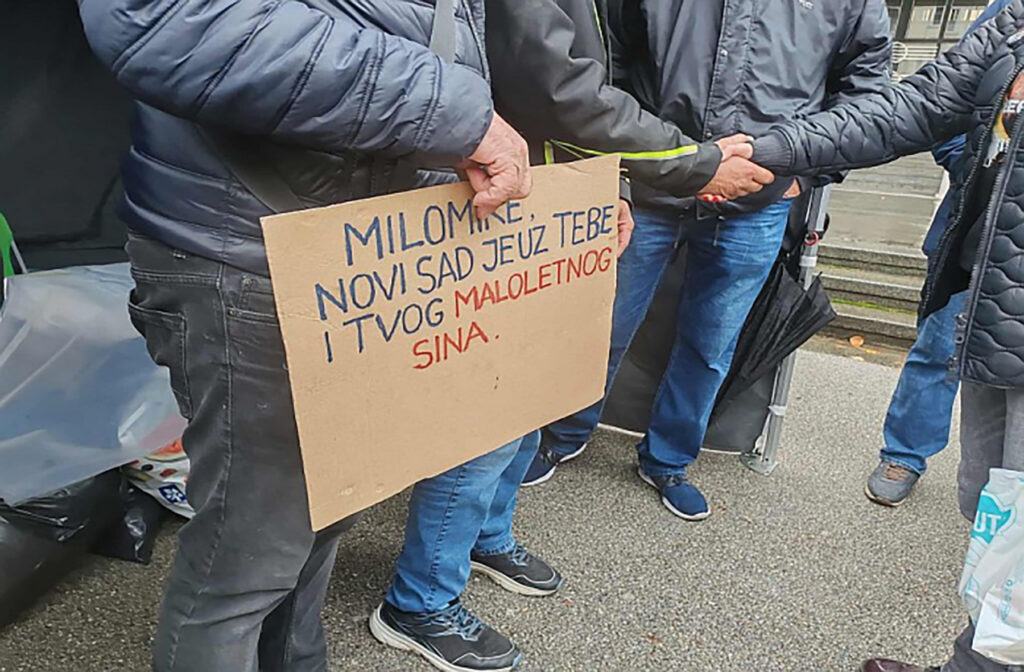 MILOMIRE,
NOVI SAD JE UZ TEBE
I TVOG MALOLETNOG
SINA.
UT